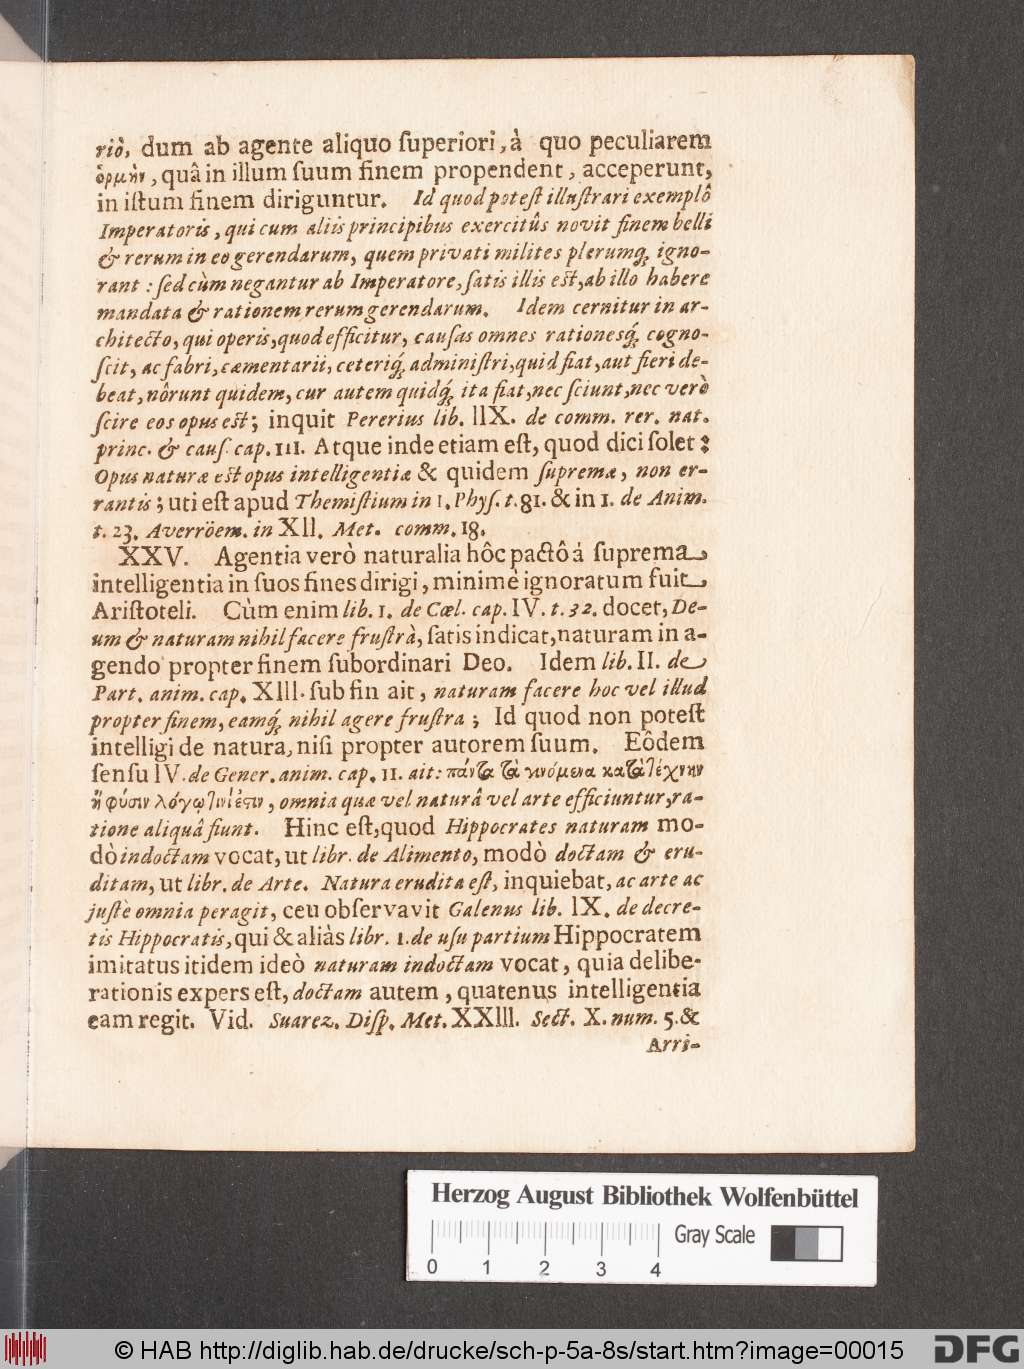 riò, dum ab agente aliquo ſuperiori, à quo peculiarem
ὁρμὴν, quâ in illum ſuum finem propendent, acceperunt,
in iſtum finem diriguntur. Id quod poteſt illuſtrari exemplô
Imperatoris, qui cum aliis principibus exercitûs novit finem belli
& rerum in eo gerendarum, quem privati milites plerumq; igno-
rant: ſed cùm negantur ab Imperatore, ſatis illis eſt, ab illo habere
mandata & rationem rerum gerendarum. Idem cernitur in ar-
chitecto, qui operis, quod efficitur, cauſas omnes rationesq; cogno-
ſcit, ac fabri, cæmentarii, ceteriq; adminiſtri, quid fiat, aut fieri de-
beat, nôrunt quidem, cur autem quidq; ita fiat, nec ſciunt, nec verò
ſcire eos opus eſt; inquit Pererius lib. IIX. de comm. rer. nat.
princ. & cauſ. cap. III. Atque inde etiam eſt, quod dici ſolet:
Opus naturæ eſt opus intelligentiæ & quidem ſupremæ, non er-
rantis; uti eſt apud Themiſtium in I. Phyſ. t. 81. & in I. de Anim.
t. 23. Averröem. in XII. Met. comm. 18.
XXV. Agentia verò naturalia hôc pactô á ſuprema
intelligentia in ſuos fines dirigi, minimè ignoratum fuit
Ariſtoteli. Cùm enim lib. I. de Cœl. cap. IV. t. 32. docet, De-
um & naturam nihil facere fruſtrà, ſatis indicat, naturam in a-
gendo propter finem ſubordinari Deo. Idem lib. II. de
Part. anim. cap. XIII. ſub fin ait, naturam facere hoc vel illud
propter finem, eamq; nihil agere fruſtra; Id quod non poteſt
intelligi de natura, niſi propter autorem ſuum. Eôdem
ſenſu IV. de Gener. anim. cap. II. ait: πάντα τὰ γινόμενα κατὰ τέχνην
ἢ φύσιν λόγῳ τινί ἐστιν, omnia quæ vel naturâ vel arte efficiuntur, ra-
tione aliquâ fiunt. Hinc eſt, quod Hippocrates naturam mo-
dò indoctam vocat, ut libr. de Alimento, modò doctam & eru-
ditam, ut libr. de Arte. Natura erudita eſt, inquiebat, ac arte ac
juſtè omnia peragit, ceu obſervavit Galenus lib. IX. de decre-
tis Hippocratis, qui & aliàs libr. I. de uſu partium Hippocratem
imitatus itidem ideò naturam indoctam vocat, quia delibe-
rationis expers eſt, doctam autem, quatenus intelligentia
eam regit. Vid. Suarez. Diſp. Met. XXIII. Sect. X. num. 5. &
Arri-
Herzog August Bibliothek Wolfenbüttel
Gray Scale
0 1 2 3 4
© HAB http://diglib.hab.de/drucke/sch-p-5a-8s/start.htm?image=00015
DFG